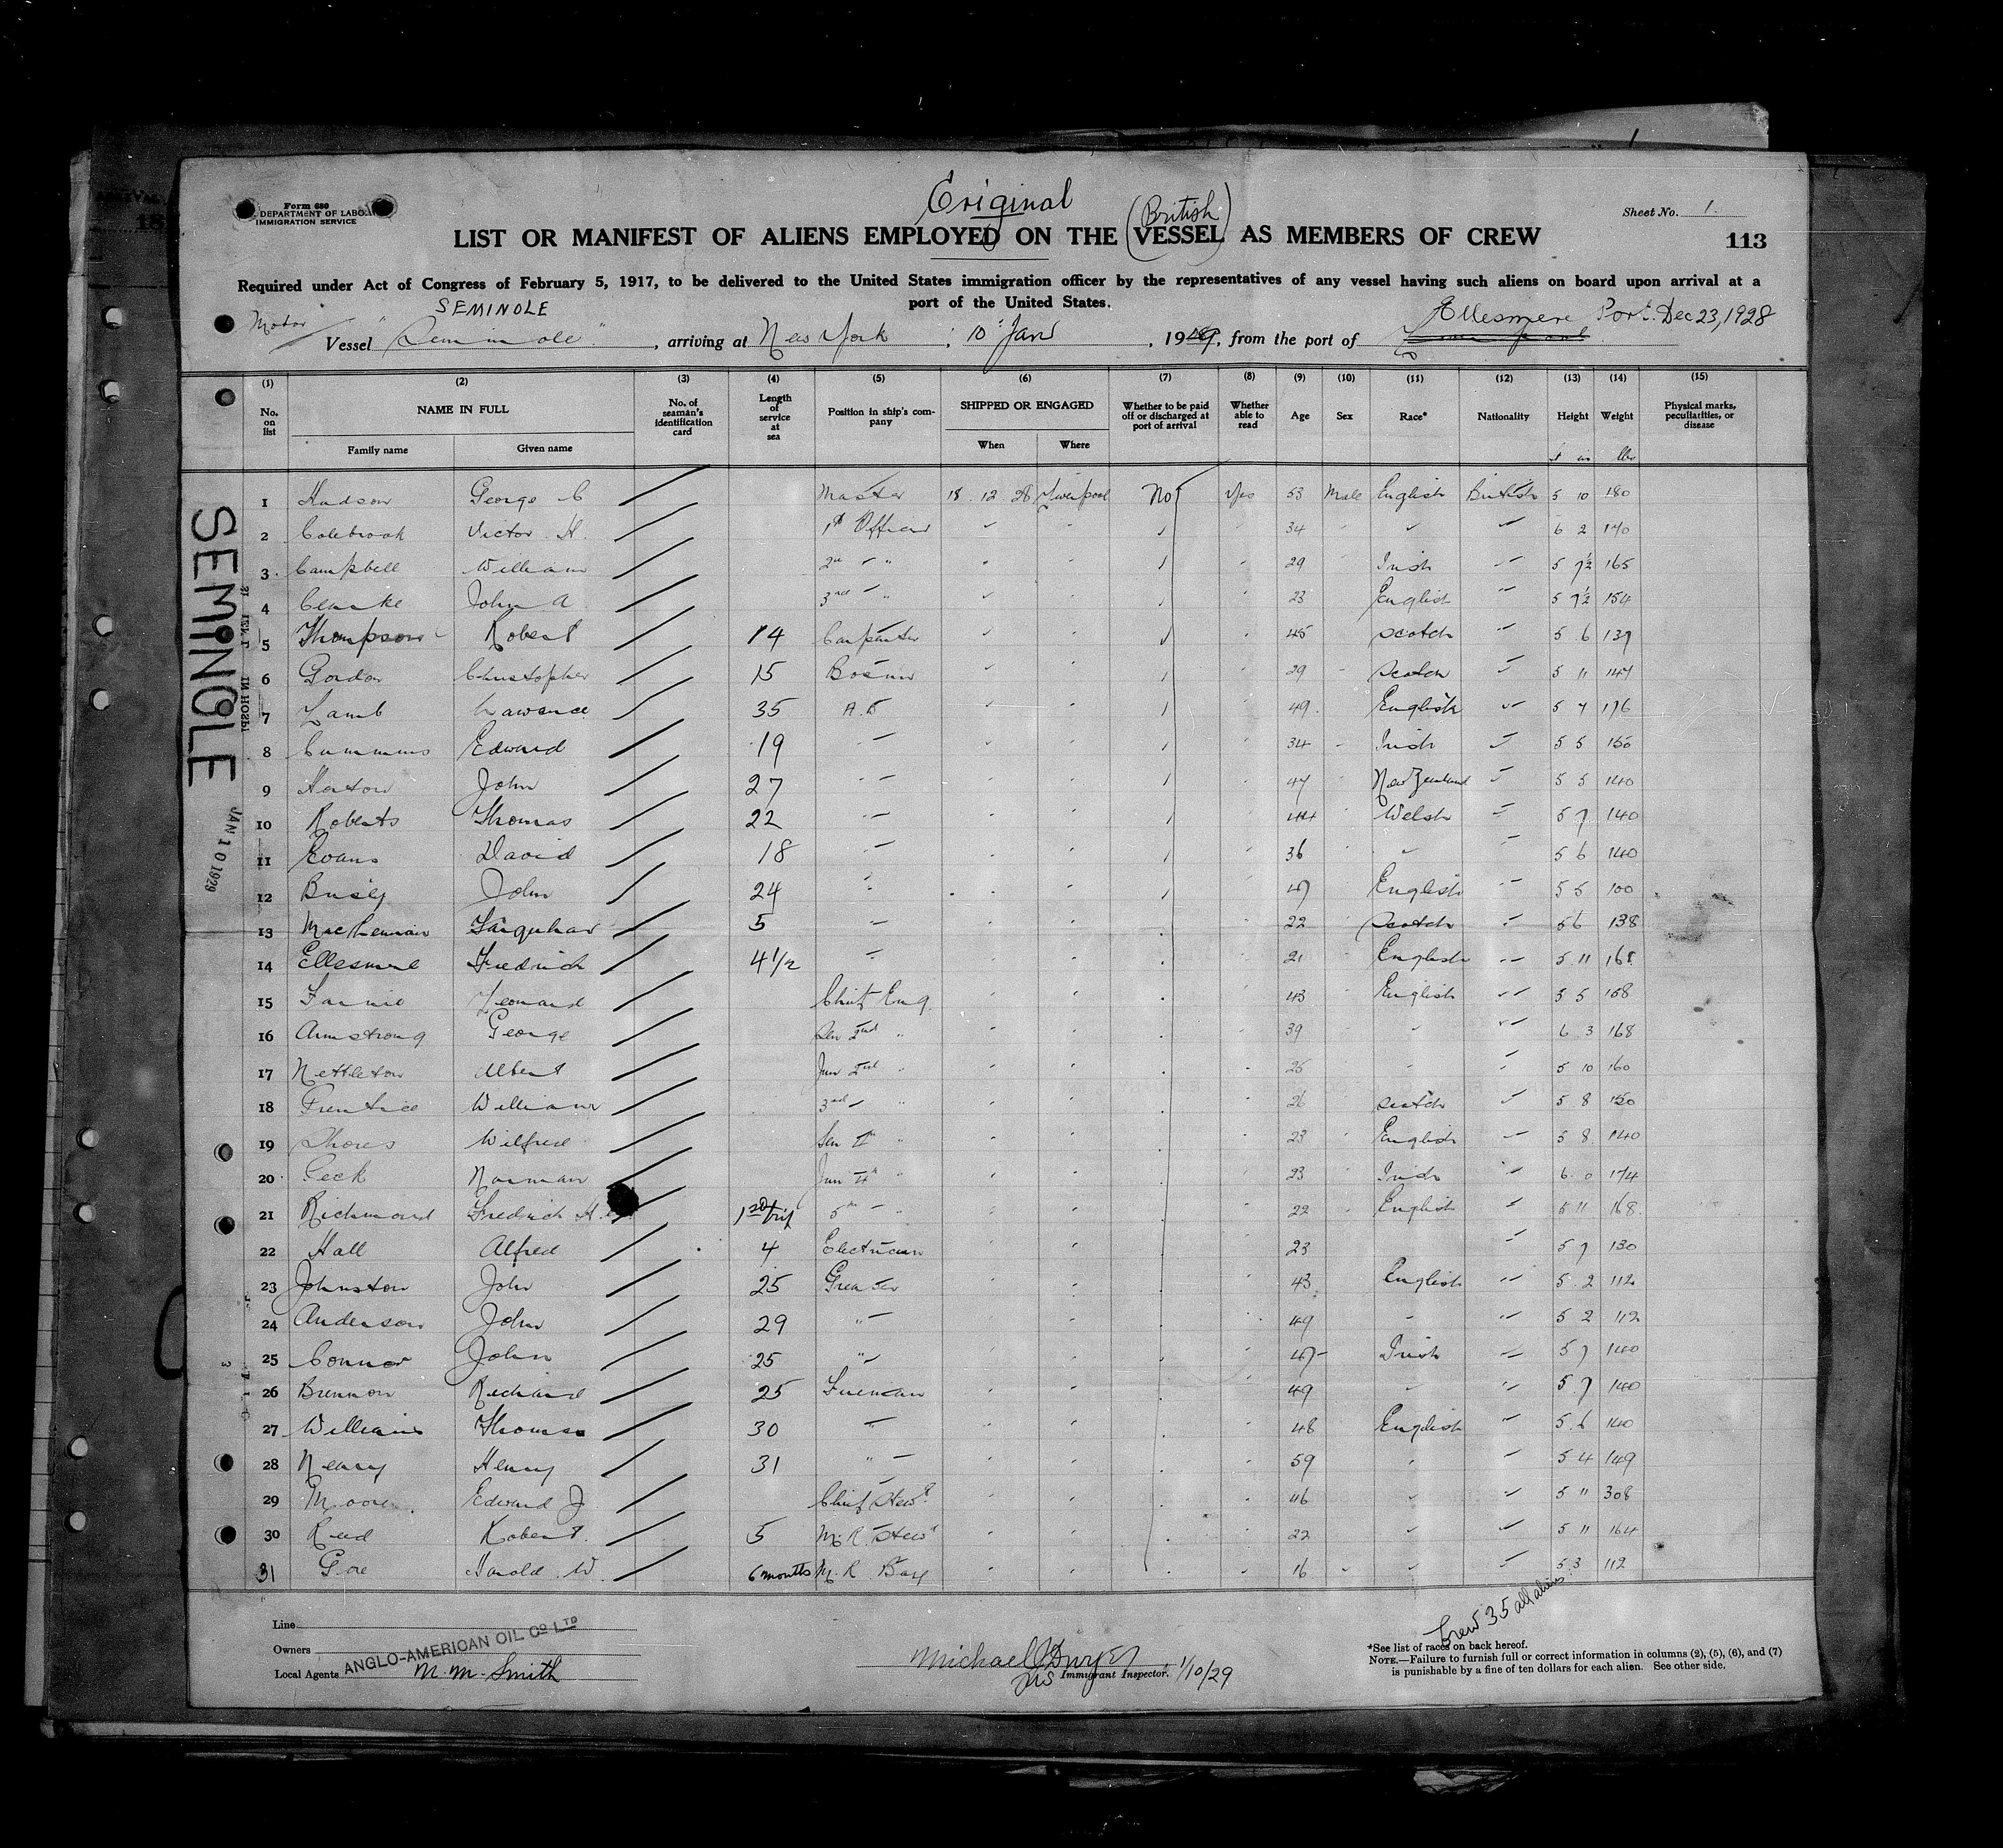 Form 680
DEPARTMENT OF LABOR
IMMIGRATION SERVICE
Original
(British)
Sheet No. 1.
LIST OR MANIFEST OF ALIENS EMPLOYED ON THE VESSEL AS MEMBERS OF CREW
113
Required under Act of Congress of February 5, 1917, to be delivered to the United States immigration officer by the representatives of any vessel having such aliens on board upon arrival at a
port of the United States.
SEMINOLE
Ellesmere Port. Dec 23, 1928
Motor Vessel "Seminole", arriving at New York, 10 Jan, 1929, from the port of
(1) (2) (3) (4) (5) (6) (7) (8) (9) (10) (11) (12) (13) (14) (15)
No. on list NAME IN FULL No. of seaman's identification card Length of service at sea Position in ship's company SHIPPED OR ENGAGED Whether to be paid off or discharged at port of arrival Whether able to read Age Sex Race* Nationality Height Weight Physical marks, peculiarities, or disease
Family name Given name When Where
ft in lbs
1 Hudson George C Master 18 12 28 Liverpool No Yes 53 Male English British 5 10 180
2 Colebrook Victor H. 1st Officer 34 " " 6 2 170
3 Campbell William 2nd " 29 Irish " 5 7½ 165
4 Clarke John A 3rd " 23 English " 5 7½ 154
5 Thompson Robert 14 Carpenter 45 Scotch " 5 6 137
6 Gordon Christopher 15 Bosun 29 Scotch " 5 11 147
7 Lamb Lawrence 35 A.B 49 English " 5 7 176
8 Cummins Edward 19 " 34 Irish " 5 5 150
9 Horton John 27 " 47 New Zealand " 5 5 140
10 Roberts Thomas 22 " 44 Welsh " 5 7 140
11 Evans David 18 " 36 " " 5 6 140
12 John 24 " 47 English " 5 5 100
13 MacLennan Farquhar 5 " 22 Scotch " 5 6 138
14 Ellesmere Fredrick 4½ " 21 English " 5 11 168
15 Leonard Chief Eng. 43 English " 5 5 158
16 Armstrong George Sen 2nd " 39 " " 6 3 168
17 Nettleton Albert Jun 2nd " 25 " " 5 10 160
18 Prentice William 3rd " 26 Scotch " 5 8 150
19 Shores Wilfred Sen 4th " 23 English " 5 8 140
20 Peck Norman Jun 4th " 23 Irish " 6 0 174
21 Richmond Fredrick H. 1st trip 5th " 22 English " 5 11 168
22 Hall Alfred 4 Electrician 23 " 5 7 130
23 Johnston John 25 Greaser 43 English " 5 2 112
24 Anderson John 29 " 49 " " 5 2 112
25 Connor John 25 " 47 Irish " 5 7 140
26 Brennan Richard 25 Fireman 49 " " 5 7 140
27 Williams Thomas 30 " 48 English " 5 6 140
28 Neary Henry 31 " 59 " " 5 4 149
29 Moore Edward J Chief Stewd 46 " " 5 11 308
30 Reed Robert 5 M.R. Stewd 22 " " 5 11 164
31 Gore Harold W. 6 months M.R Boy 16 " " 5 3 112
SEMINOLE
JAN 10 1929
Crew 35 all aliens
Line
Owners ANGLO-AMERICAN OIL CO LTD
Local Agents M. M. Smith
Michael J Dwyer
Immigrant Inspector. 1/10/29
*See list of races on back hereof.
NOTE.—Failure to furnish full or correct information in columns (2), (5), (6), and (7)
is punishable by a fine of ten dollars for each alien. See other side.